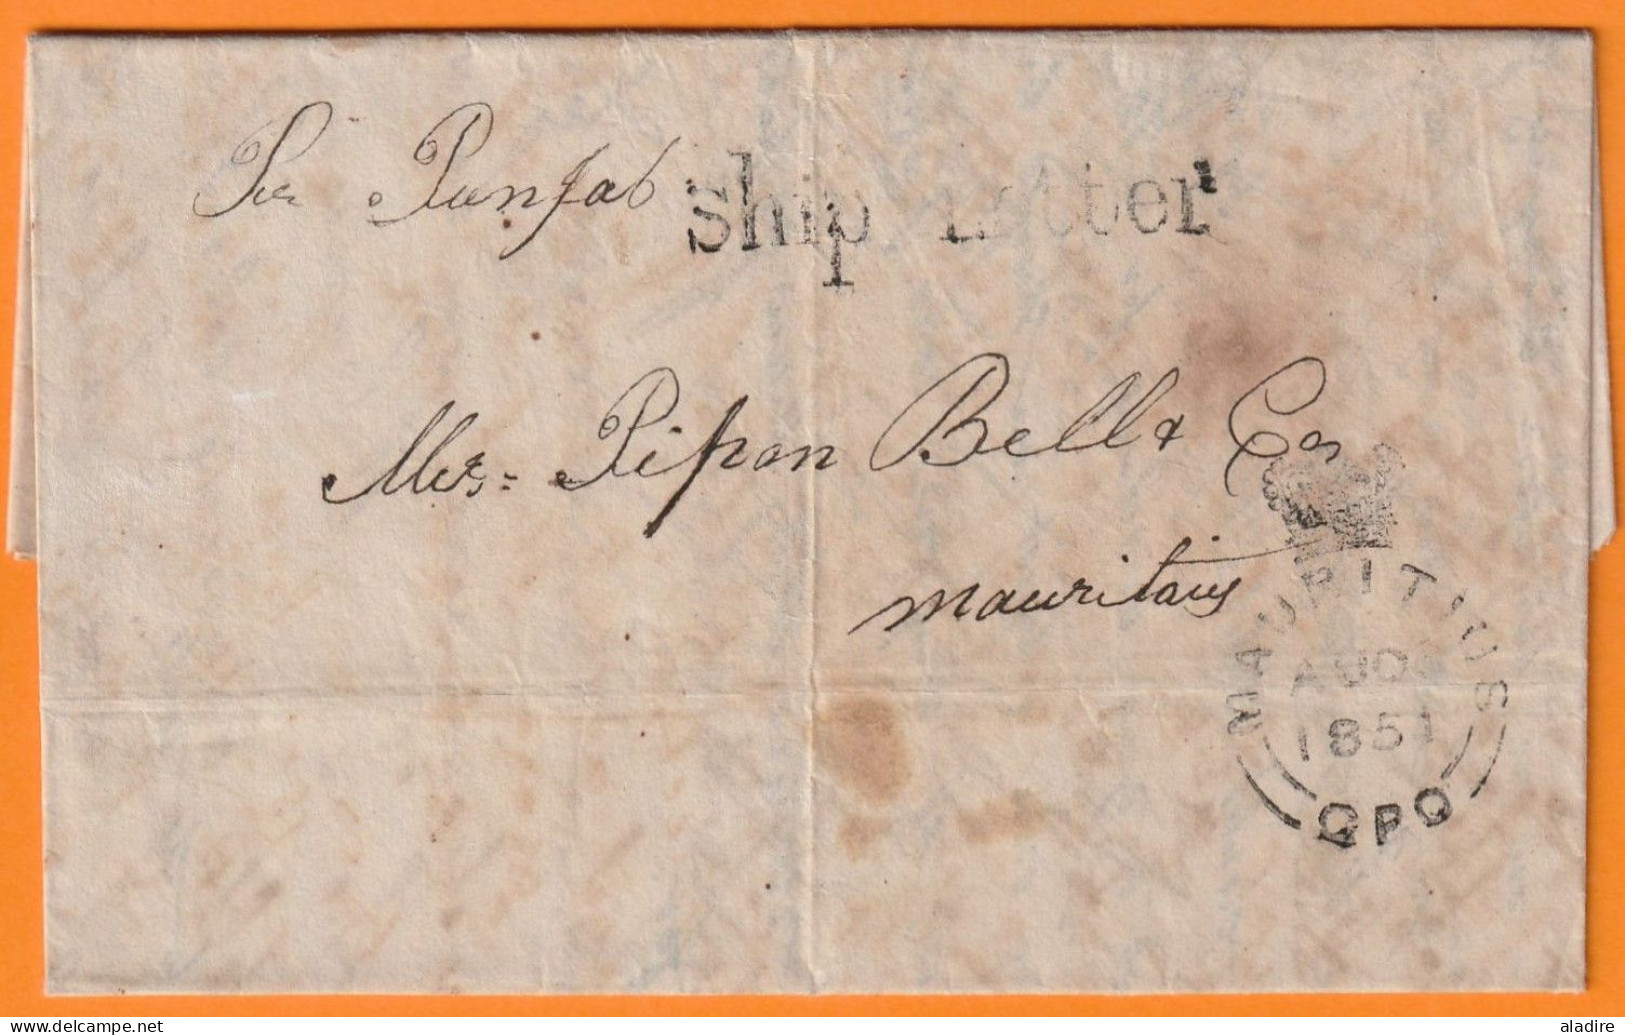 Per Punjab
Ship Letter
Mes:= Pipon Bell & Co
Mauritius
MAURITIUS
AU
1851
GPO
aladire